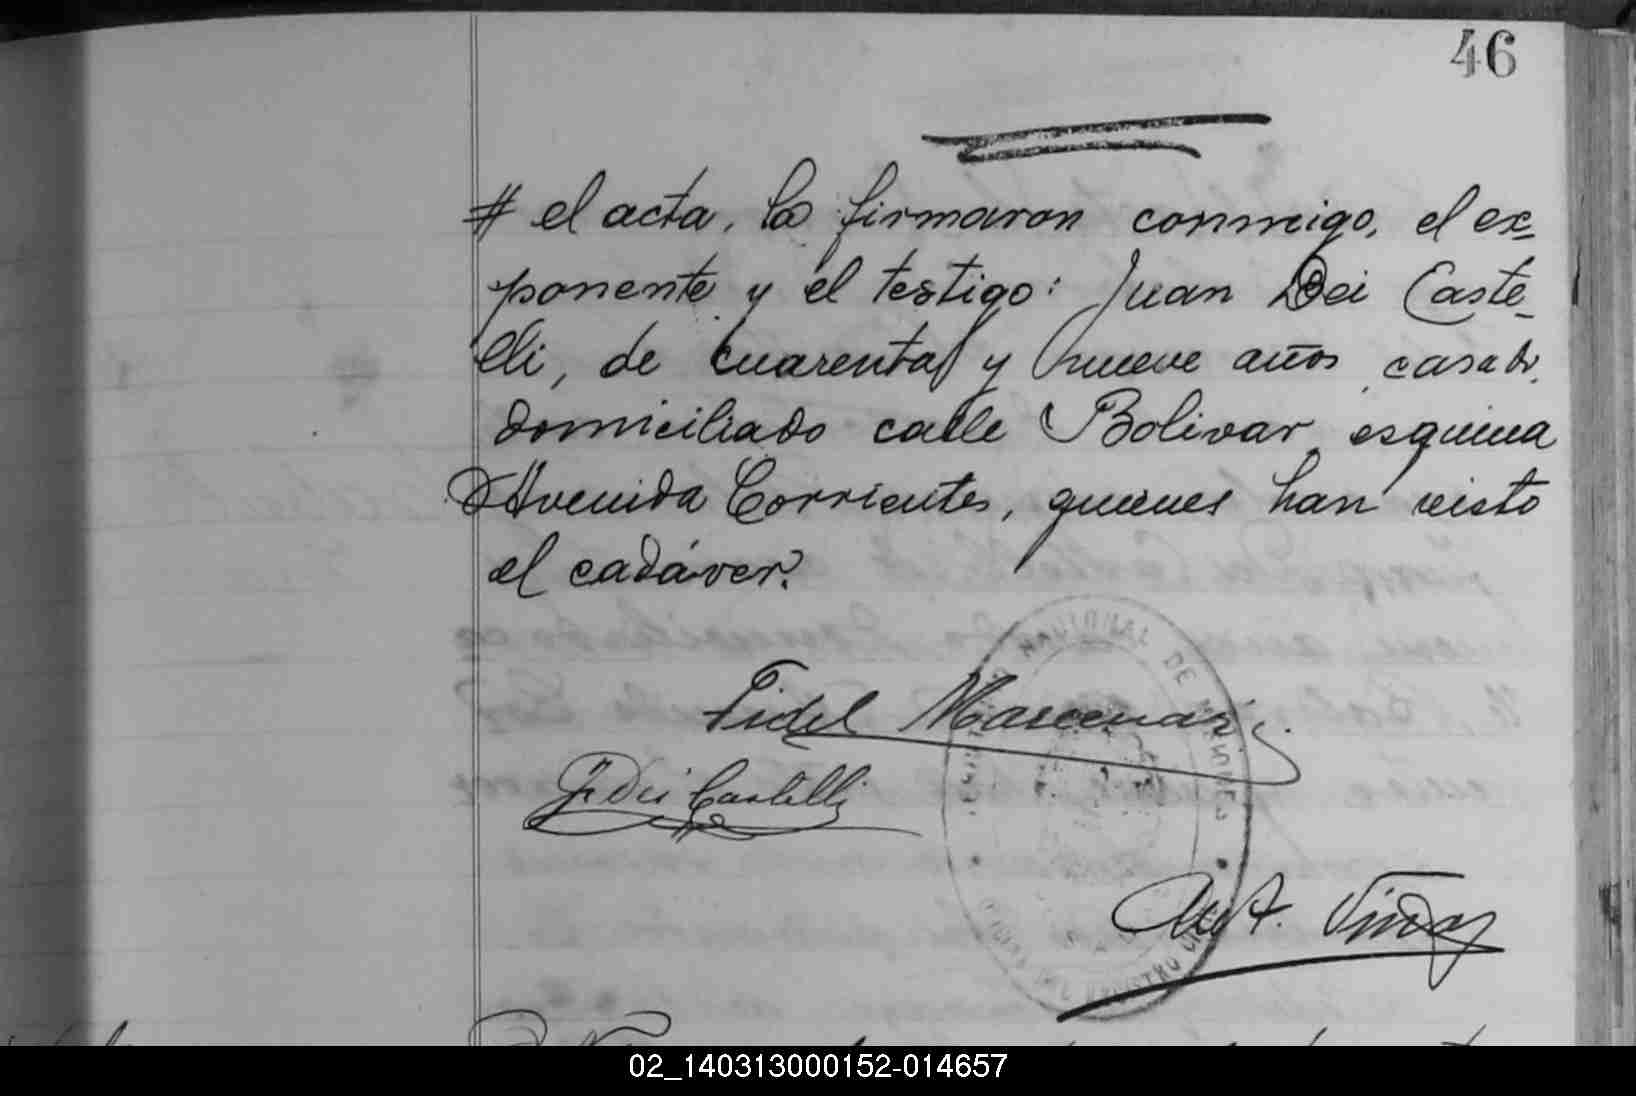 46
# el acta, la firmaron conmigo, el ex-
ponente y el testigo: Juan Dei Caste-
lli, de cuarenta y nueve años, casado,
domiciliado calle Bolivar esquina
Avenida Corrientes, quienes han visto
el cadáver.
Fidel
J. Dei Castelli
NACIONAL DE
02_140313000152-014657